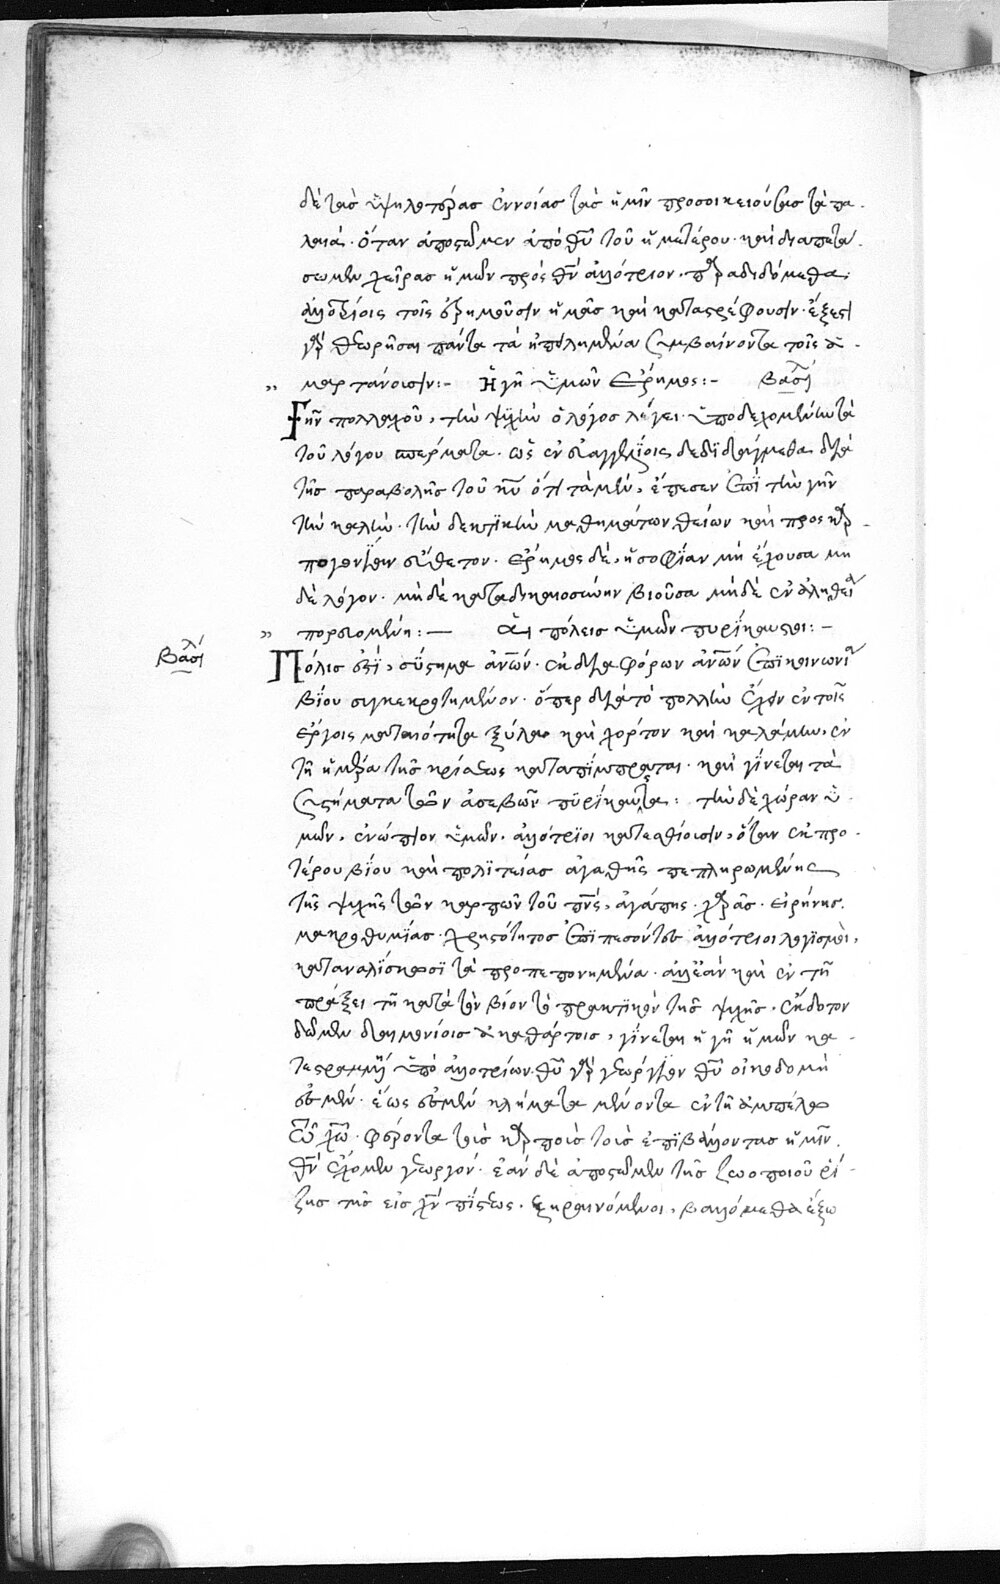 δὲ τὰς ὑψηλοτέρας ἐννοίας τὰς ἡμῖν προσοικειούσας τὰ πα-
λαιά. ὅταν ἀποστῶμεν ἀπὸ θῦ τοῦ ἡμετέρου. καὶ διαπετά-
σωμεν χεῖρας ἡμῶν πρὸς θν̅ ἀλλότριον. παραδιδόμεθα
ἀλλοτρίοις τοῖς ἐρημοῦσιν ἡμᾶς καὶ καταστρέφουσιν. ἔξεστι
γὰρ θεωρῆσαι πάντα τὰ ἠπειλημένα συμβαίνοντα τοῖς ἁ-
μαρτάνοισιν:- Ἡ γῆ ὑμῶν ἔρημος:- Βασιλ
Γῆν πολλαχοῦ, τὴν ψυχὴν ὁ λόγος λέγει. ὑποδεχομένην τὰ
τοῦ λόγου σπέρματα. ὡς ἐν εὐαγγελίοις δεδιδάγμεθα διὰ
τῆς παραβολῆς τοῦ κυ̅ ὅτι τὰ μὲν, ἔπεσεν ἐπὶ τὴν γῆν
τὴν καλήν. τὴν δεκτικὴν μαθημάτων θείων καὶ πρὸς καρ-
πογονίαν εὔθετον. ἔρημος δὲ, ἡ σοφίαν μὴ ἔχουσα μη
δὲ λόγον. μηδὲ κατὰ δικαιοσύνην βιοῦσα μηδὲ ἐν ἀληθείᾳ
πορευομένη:— Αἱ πόλεις ὑμῶν πυρίκαυστοι:-
Βασιλ
Πόλις ἐστὶ, σύστημα ἀνων̅. ἐκ διαφόρων ἀνων̅ ἐπὶ κοινωνίᾳ
βίου συγκεκροτημένον. ὅπερ διὰ τὸ πολλὴν ἔχειν ἐν τοῖς
ἔργοις ματαιότητα ξύλον καὶ χόρτον καὶ καλάμην, ἐν
τῇ ἡμέρα τῆς κρίσεως καταπίμπραται. καὶ γίνεται τὰ
συστήματα τῶν ἀσεβῶν πυρίκαυστα: τὴν δὲ χώραν ὑ-
μῶν, ἐνώπιον ὑμῶν, ἀλλότριοι κατεσθίουσιν, ὅταν ἐκ προ-
τέρου βίου καὶ πολιτείας ἀγαθῆς πεπληρωμένης
τῆς ψυχῆς τῶν καρπῶν τοῦ πνς̅, ἀγάπης. χαρᾶς. εἰρήνης.
μακροθυμίας. χρηστότητος ἐπιπεσόντες ἀλλότριοι λογισμοὶ,
καταναλίσκουσι τὰ προπεπονημένα. ἀλλ' ἐὰν καὶ ἐν τῇ
πράξει τῇ κατὰ τὸν βίον τὸ πρακτικὸν τῆς ψυχῆς, ἔκδοτον
δῶμεν δαιμονίοις ἀκαθάρτοις, γίνεται ἡ γῆ ἡμῶν κα-
τεστραμμένη ὑπὸ ἀλλοτρίων. θῦ γὰρ γεώργιον θῦ οἰκοδομὴ
ἐσμέν. ἕως ἐσμὲν κλήματα μένοντα ἐν τῇ ἀμπέλῳ
τῷ χω̅. φέροντα τοὺς καρποὺς τοὺς ἐπιβάλλοντας ἡμῖν.
θν̅ ἔχομεν γεωργόν. ἐὰν δὲ ἀποστῶμεν τῆς ζωοποιοῦ ῥί-
ζης τῆς εἰς χν̅ πίστεως. ξηραινόμενοι, βαλλόμεθα ἔξω